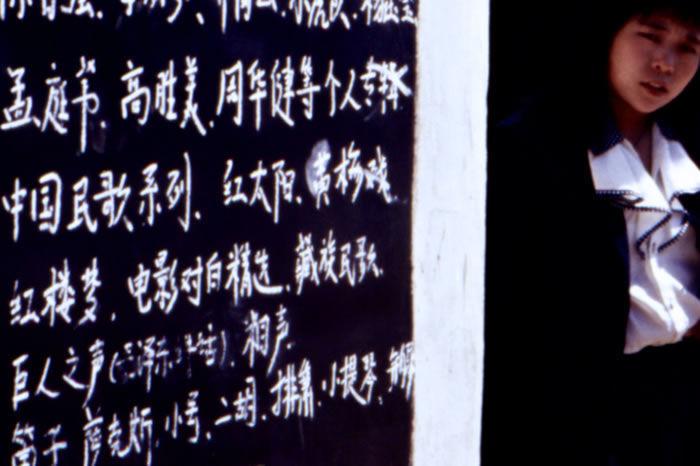 小虎队
孟庭苇、高胜美、周华健等个人专辑
中国民歌系列、红太阳、黄梅戏
红楼梦、电影对白精选、藏族民歌
巨人之声(毛泽东讲话)、相声
笛子、萨克斯、小号、二胡、排箫、小提琴、